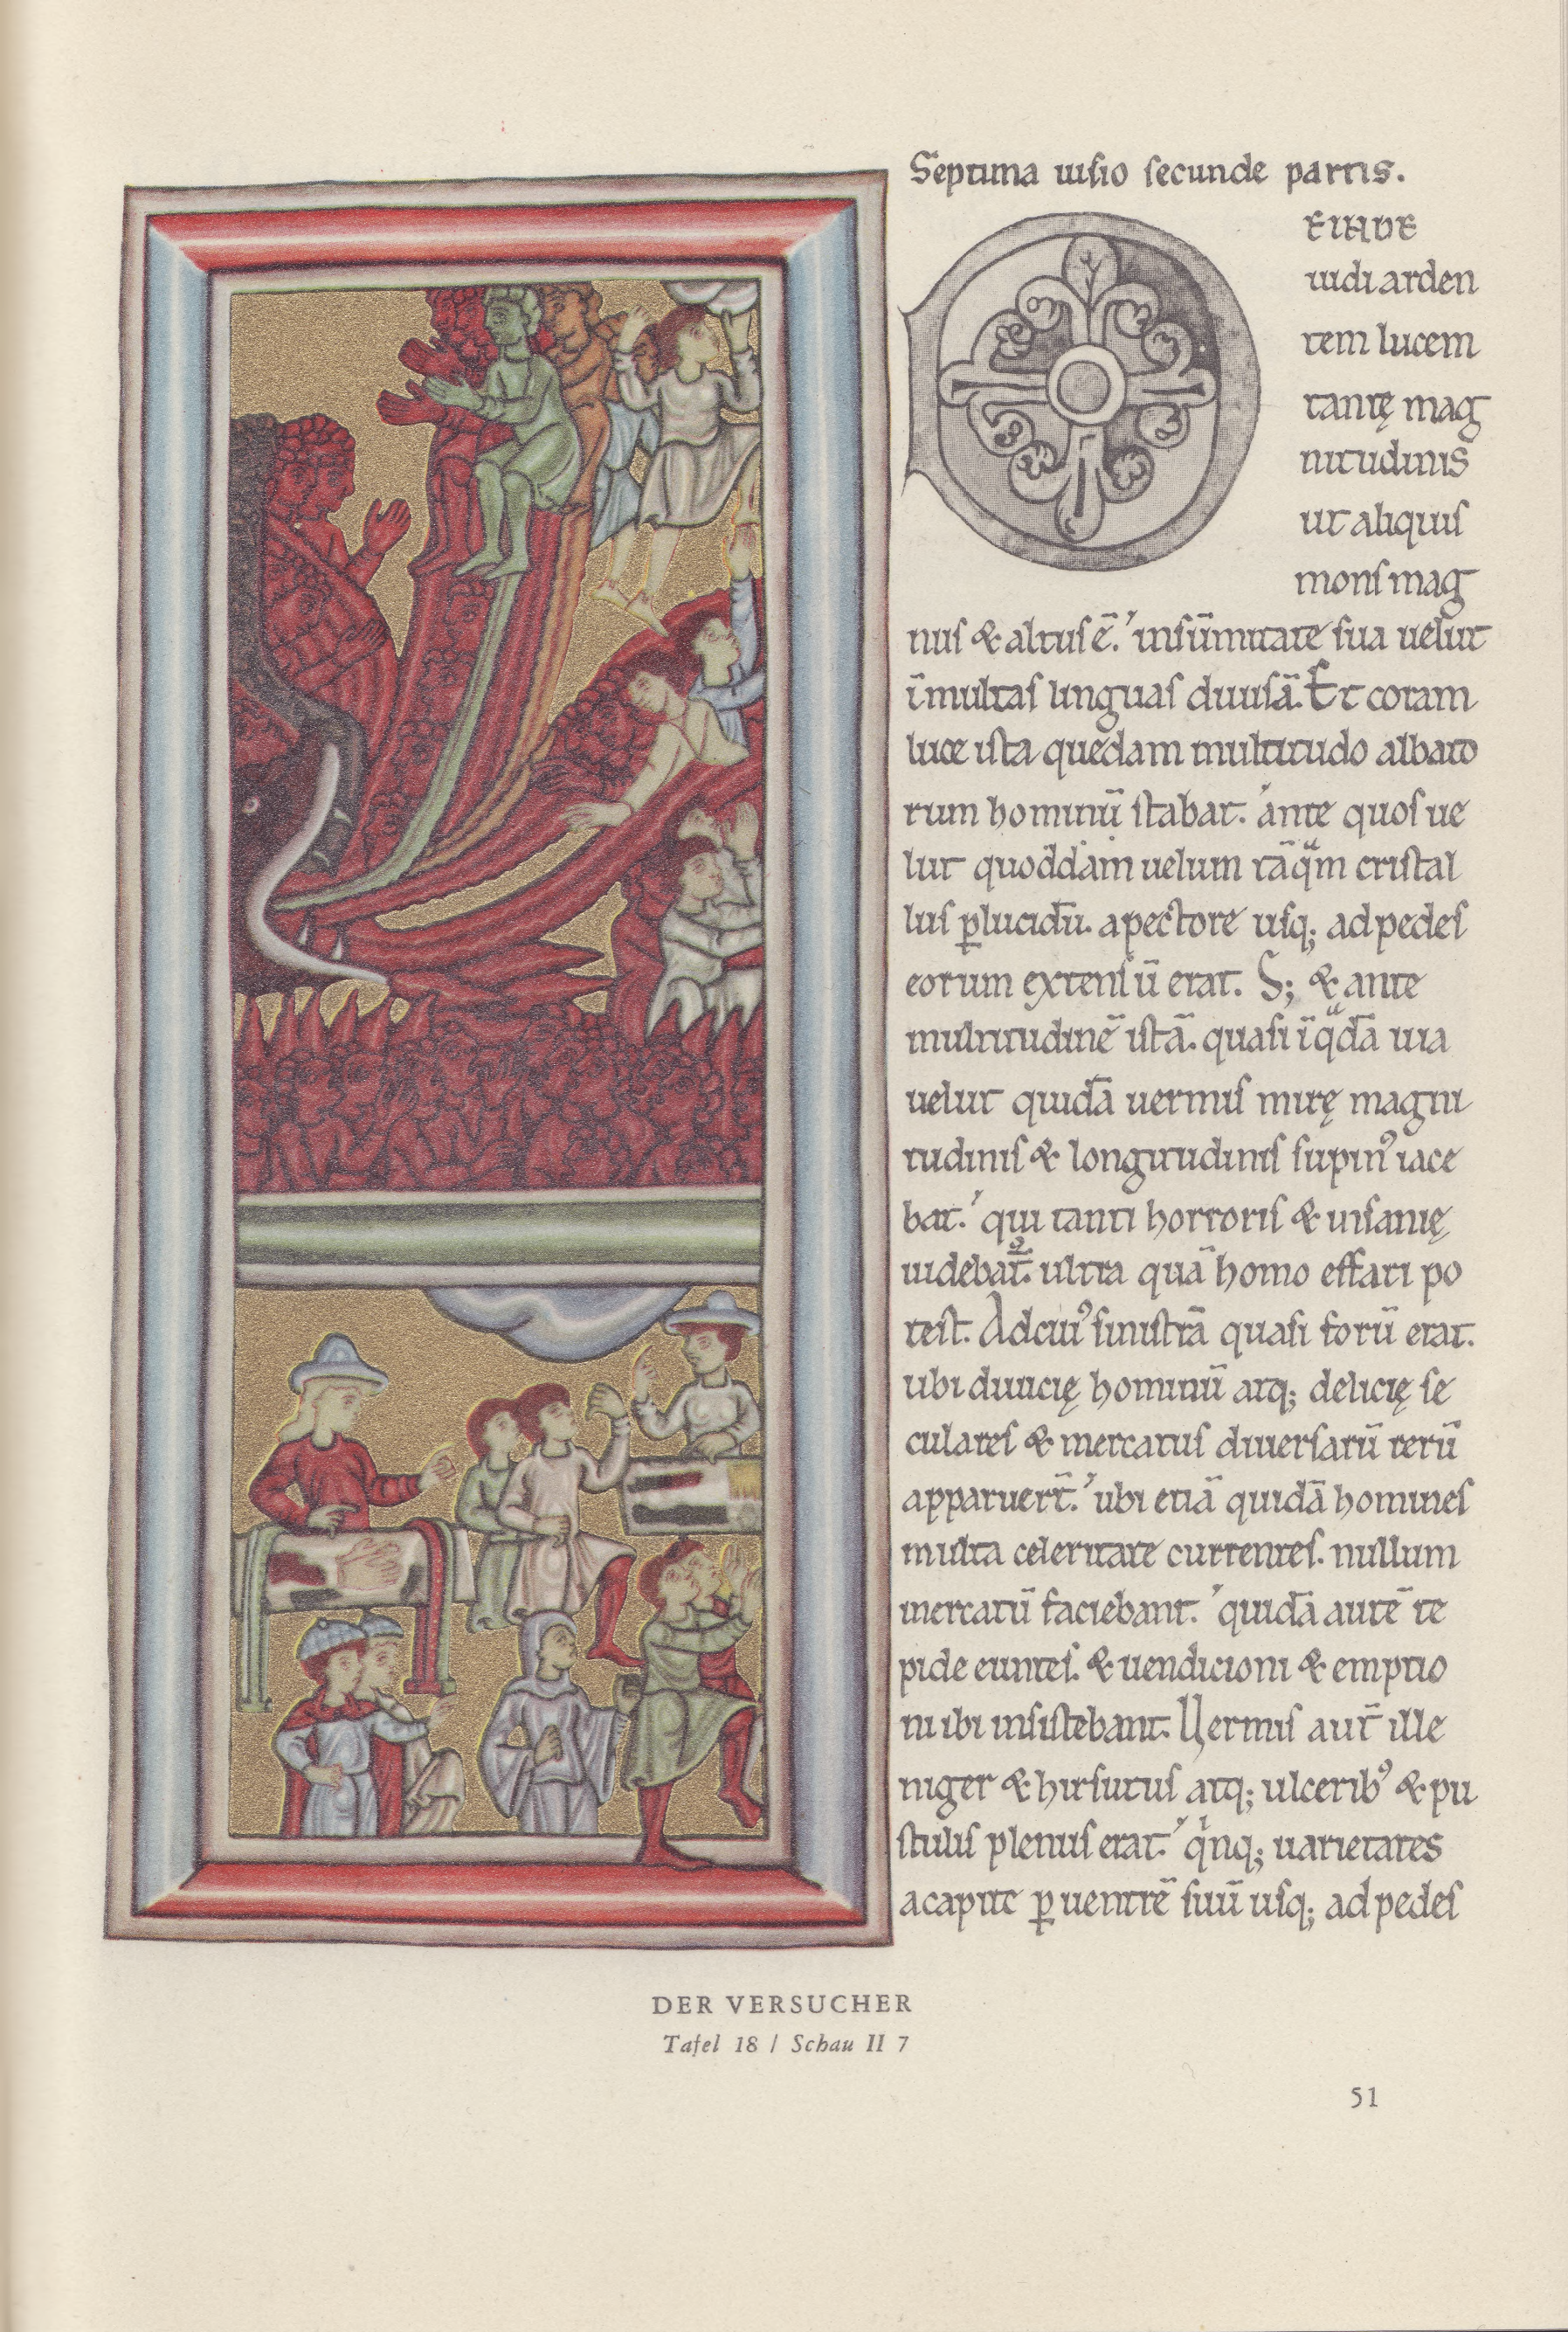 Septima uisio secunde partis.
DEINDE
uidi arden
tem lucem
tantę mag
nitudinis
ut aliquis
mons mag
nus & altus ē. insūmitate sua uelut
ī multas linguas diuisā. Et coram
luce ista quedam multitudo albato
rum hominū stabat. ante quos ue
lut quoddam uelum tāqͣm cristal
lus ꝑlucidū. a pectore usq; ad pedes
eorum extensū erat. S; & ante
multitudinē istā. quasi ī qͣdā uia
uelut quidā uermis mirę magni
tudinis & longitudinis supinꝰ iace
bat. qui tanti horroris & insanię
uidebat᷑. ultra quā homo effari po
test. Ad cuiꝰ sinistrā quasi forū erat.
ubi diuicię hominū atq; delicię se
culares & mercatus diuersarū rerū
apparuer̄t. ubi etiā quidā homines
multa celeritate currentes. nullum
mercatū faciebant. quidā autē te
pide euntes. & uendicioni & emptio
ni ibi insistebant. Uermis aut̄ ille
niger & hirsutus atq; ulceribꝰ & pu
stulis plenus erat. qͥnq; uarietates
a capite ꝑ uentrē suū usq; ad pedes
DER VERSUCHER
Tafel 18 / Schau II 7
51